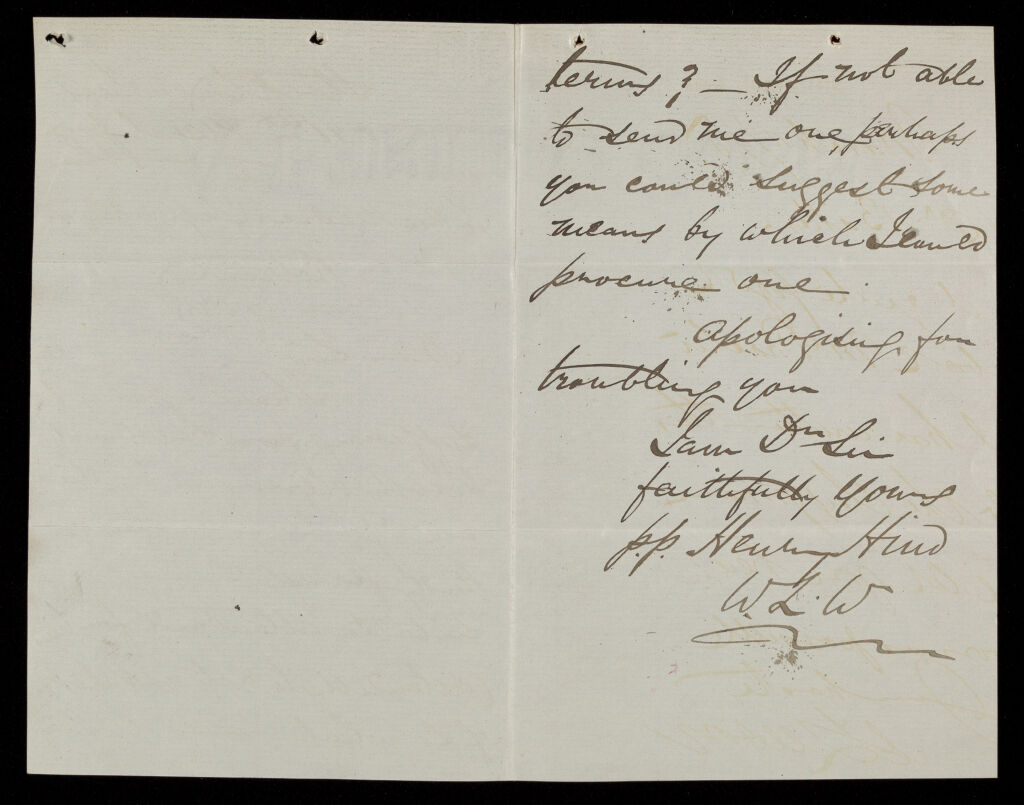 terms? – If not able
to send me one, perhaps
you could suggest some
means by which I could
procure one
Apologising for
troubling you
I am Dr Sir
faithfully yours
p.p. Henry Hind
W. L. W